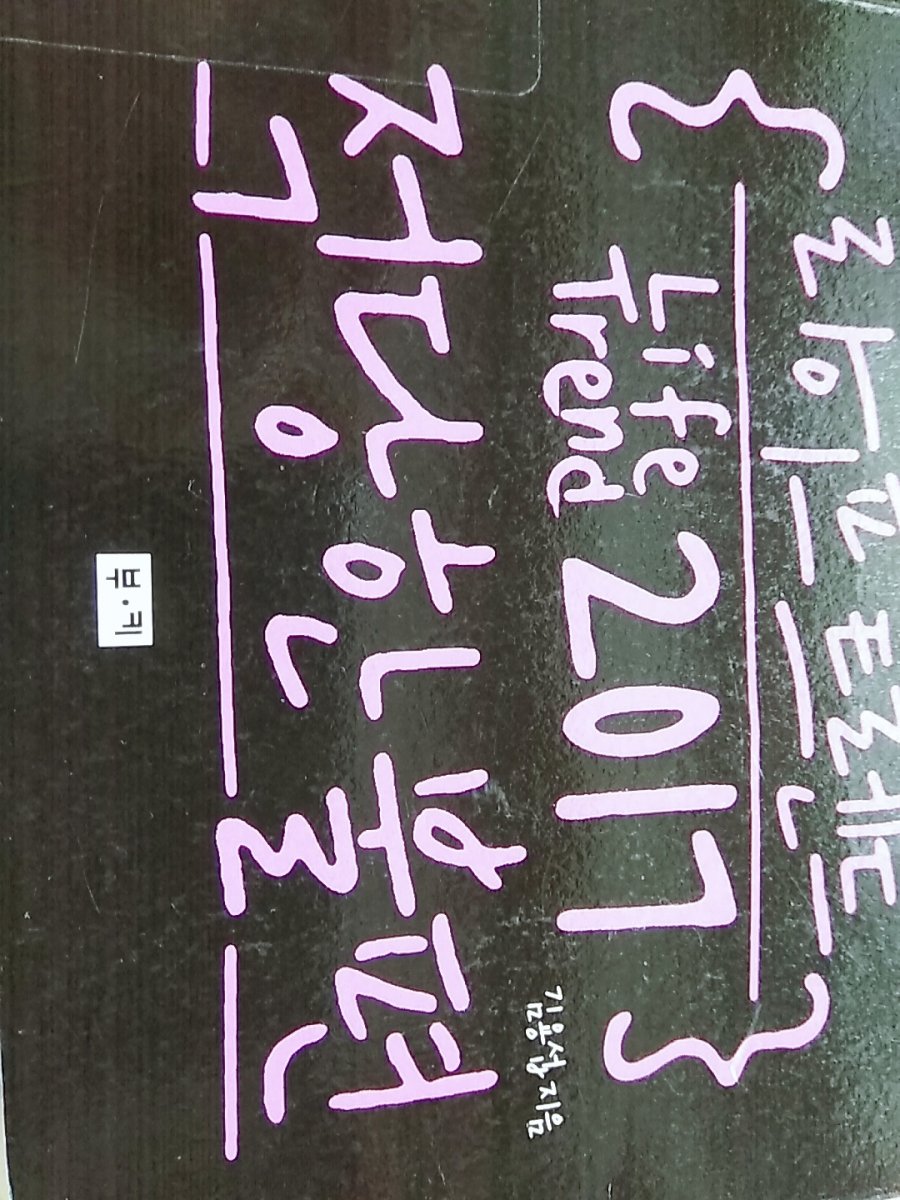 라이프 트렌드
Life
Trend
2017
김용섭 지음
적당한 불편
부·키